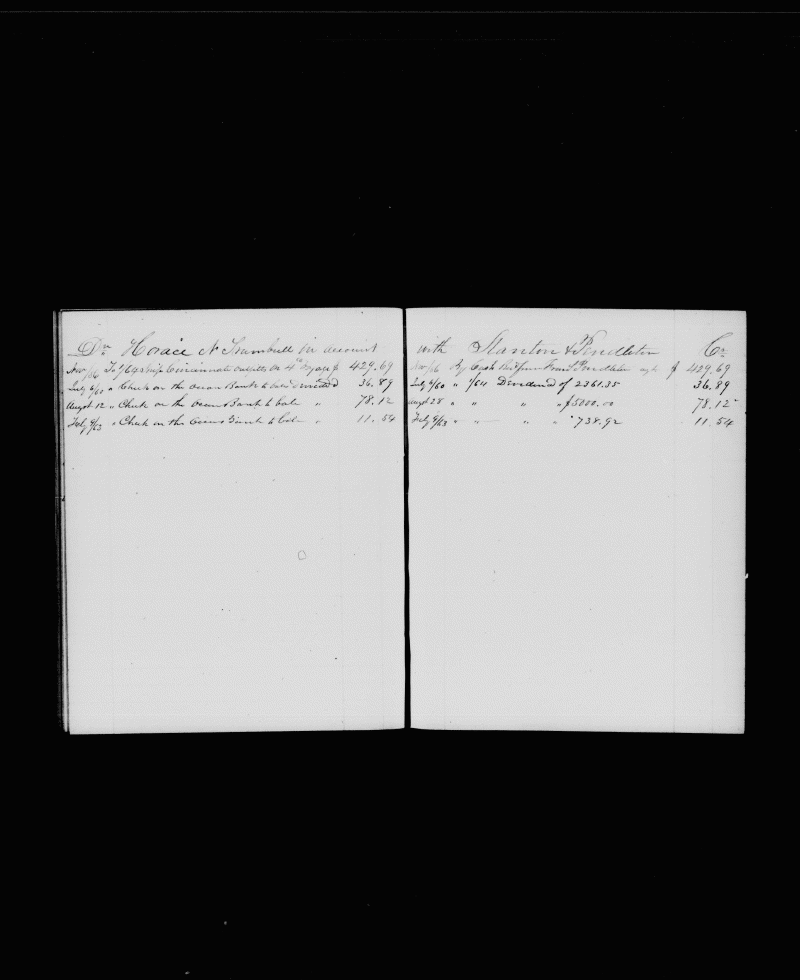 Dr Horace N Trumbull in account
Nov /56 To 1/64 Ship Cincinnati outfits on 4th Voyage $ 429.69
July 6/60 " Check on the Ocean Bank to bal Dividend 36.89
Augst 12 " Check on the Ocean Bank to bal " 78.12
Feby 9/63 " Check on the Ocean Bank to bal " 11.54
with Stanton & Pendleton Cr
Nov /56 By Cash Pendleton $ 429.69
July 6/60 " 1/64 Dividend of 2361.35 36.89
Augst 28 " " " " $5000.00 78.12
Feby 9/63 " " " " " 738.92 11.54